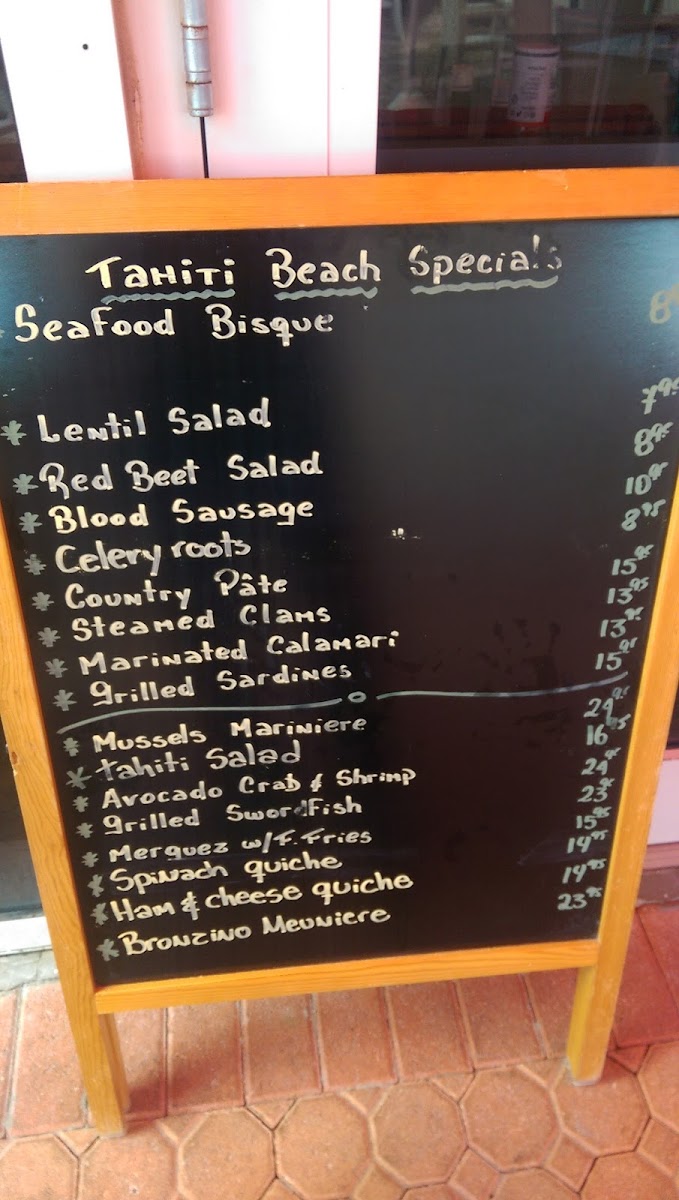 Tahiti Beach Specials
* Seafood Bisque
* Lentil Salad 7 95
* Red Beet Salad 8 95
* Blood Sausage 10 95
* Celery roots 8 95
* Country Pâte 15 95
* Steamed Clams 13 95
* Marinated Calamari 13 95
* grilled Sardines 15 95
* Mussels Mariniere 24 95
* tahiti Salad 16 95
* Avocado Crab & Shrimp 24 95
* grilled Swordfish 23 95
* Merguez w/F. Fries 15 95
* Spinach quiche 14 95
* Ham & cheese quiche 14 95
* Bronzino Meuniere 23 95